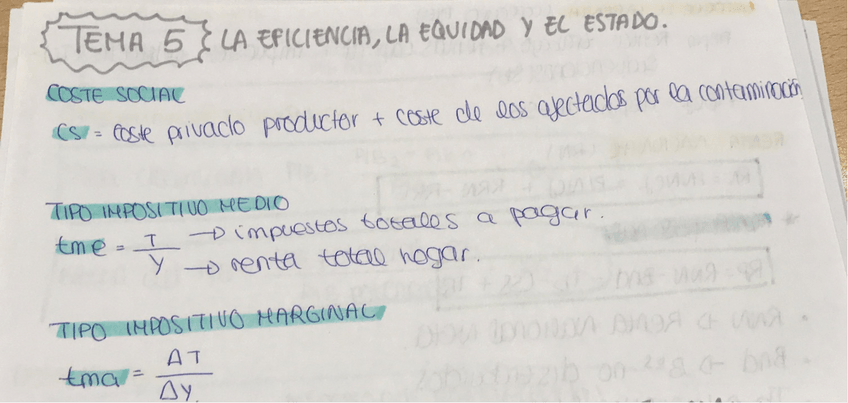 TEMA 5 LA EFICIENCIA, LA EQUIDAD Y EL ESTADO.
COSTE SOCIAL
CS = coste privado productor + coste de los afectados por la contaminación
TIPO IMPOSITIVO MEDIO
tme = T / Y
T → impuestos totales a pagar.
Y → renta total hogar.
TIPO IMPOSITIVO MARGINAL
tma = ΔT / ΔY